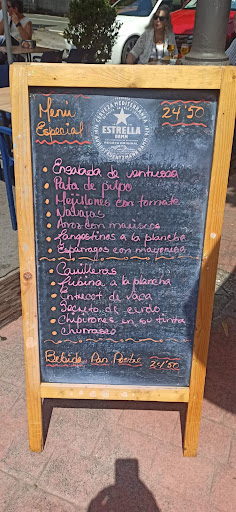 Menú
Especial
24'50
CERVEZA MEDITERRÁNEA
ESTRELLA
DAMM
BARCELONA
Ensalada de ventresca
Pata de pulpo
Mejillones con tomate
Navajas
Arroz con mariscos
Langostinos a la plancha
Esparragos con mayonesa
Lubina a la plancha
Entrecot de vaca
Secreto de cerdo
Chipirones en su tinta
Churrasco
Bebida Pan Postre 24'50